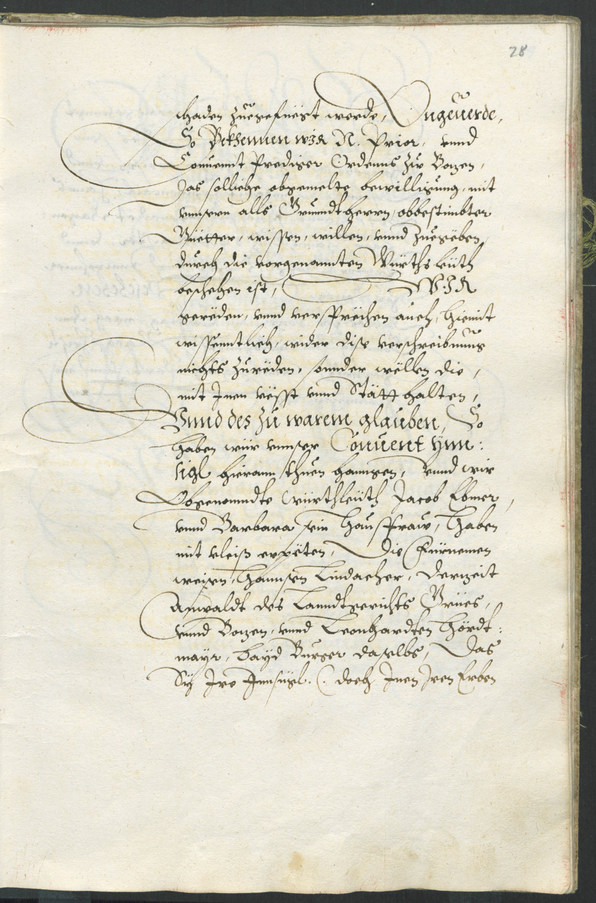 28
schaden zuegefüegt werde, Ungeuerde,
So Bekhennen wir N. Prior, vnnd
Conuennt Prediger Ordenns zu Bozen,
Das solliche obgemelte bewilligung, mit
vnnsern alls Grundtherrn, obbestimbter
Güetter, wissen, willen, vnnd zuegeben,
durch die vorgenannten Würthsleüth
beschehen ist,
gereden, vnnd versprechen auch, hiemit
wissenntlich, wider dise verschreibung
nichts zureden, sonnder wellen die,
mit Inen vësst vnnd Stätt halten,
Vnnd des zu warem glauben, So
haben wür vnnser Conuent Ynn:
sigl hieran thuen hanngen, vnnd wir
Obgenanndte Würthleüth Jacob Ebner,
vnnd Barbara sein Hausfraw, Haben
mit vleiß erpëten, Die Fürnemen
weisen, Hannsen Lindacher, derzeit
Anwaldt des Lanndtgerichts Gries,
vnnd Bozen, vnnd Leonhardten Hördt:
mayr, bayd Burger daselbs, Das
Sy Ire Innsigl. (. doch Inen Iren Erben